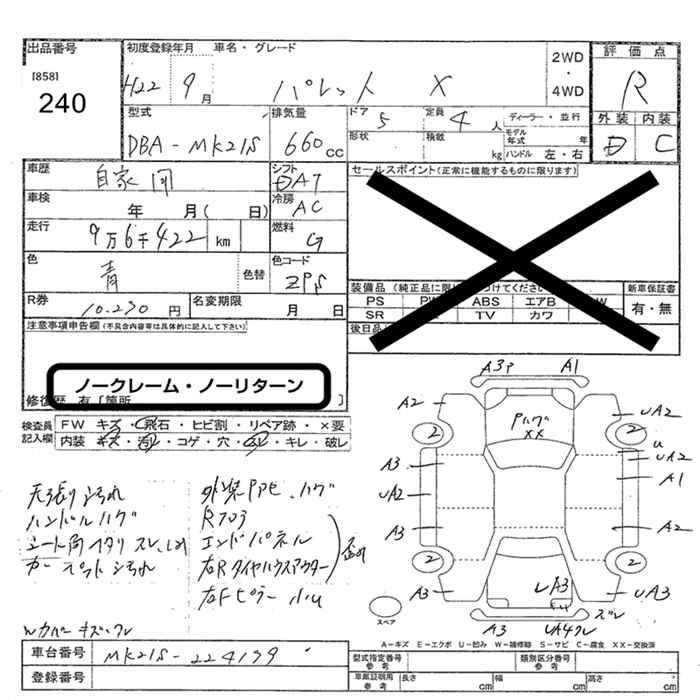 出品番号
[858]
240
初度登録年月 車名・グレード
H22 9月 パレット X
2WD
・
4WD
評価点
R
外装 内装
D C
型式
DBA-MK21S
排気量
660cc
ドア 5
定員 4人
ディーラー・並行
形状
積載 kg
モデル年式 年
ハンドル 左・右
車歴 自家用
シフト DAT
車検 年 月( 日)
冷房 AC
走行 9万6千422 km
燃料 G
色 青 色替
色コード ZPS
R券 10,230円
名変期限 月 日
セールスポイント(正常に機能するものに限ります)
装備品
新車保証書
有・無
PS ABS エアB W
SR TV カワ
後日品
注意事項申告欄(不具合内容等は具体的に記入して下さい)
ノークレーム・ノーリターン
修復歴 有[箇所 ]
検査員記入欄
FW キズ・飛石・ヒビ割・リペア跡・×要
内装 キズ・汚れ・コゲ・穴・ スレ・キレ・破レ
天張り汚れ
ハンドルハゲ
シート角ヘタリ スレ、
カーペット汚れ
外装 ハゲ
エンドパネル
右Rタイヤハウスアウター
右Fピラー 小U
Wカバーキズ・ワレ
A3P A1
A2 UA2
Pハゲ
XX
2 2
U
A3 UA2
A1
UA2
A3 A2
2 2
A3 UA3
UA3
ズレ
A3 UA4ワレ
スペア
A-キズ E-エクボ U-凹み W-補修跡 S-サビ C-腐食 XX-交換済
車台番号 MK21S-224139
登録番号
型式指定番号 参考
類別区分番号 参考
車庫証明用 参考
長さ cm 幅 cm 高さ cm